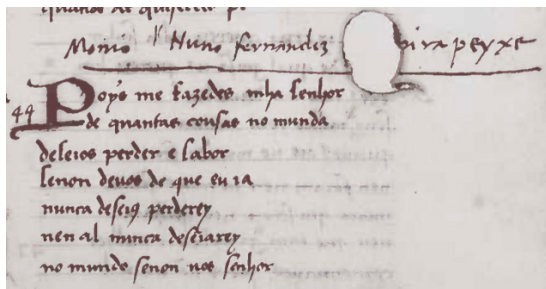 quantos de quiserdes po
Monio Nuno fernandez   oira peyxe
44 Poys me fazedes mha senhor
de quantas cousas no munda
deseios perder e sabor
senon deuos de que eu ia
nunca deseio perderey
nen al nunca deseiarey
no mundo senon uos senhor